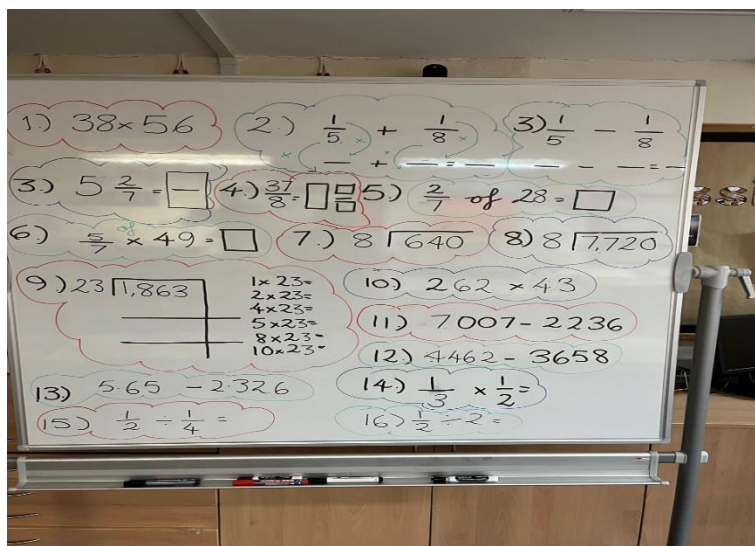 1.) 38 × 56 2.) 1/5 + 1/8 3) 1/5 − 1/8
× × × — + — = — — − — = —
3.) 5 2/7 = 4.) 37/8 = 5.) 2/7 of 28 =
6.) 5/7 of × 49 = 7.) 8 640 8) 8 7,720
9) 23 1,863
1 × 23=
2 × 23=
4 × 23=
5 × 23=
8 × 23=
10 × 23=
10) 262 × 43
11) 7007 − 2236
12) 4462 − 3658
13) 5.65 − 2.326 14) 1/3 × 1/2 =
15) 1/2 ÷ 1/4 = 16) 1/2 ÷ 2 =